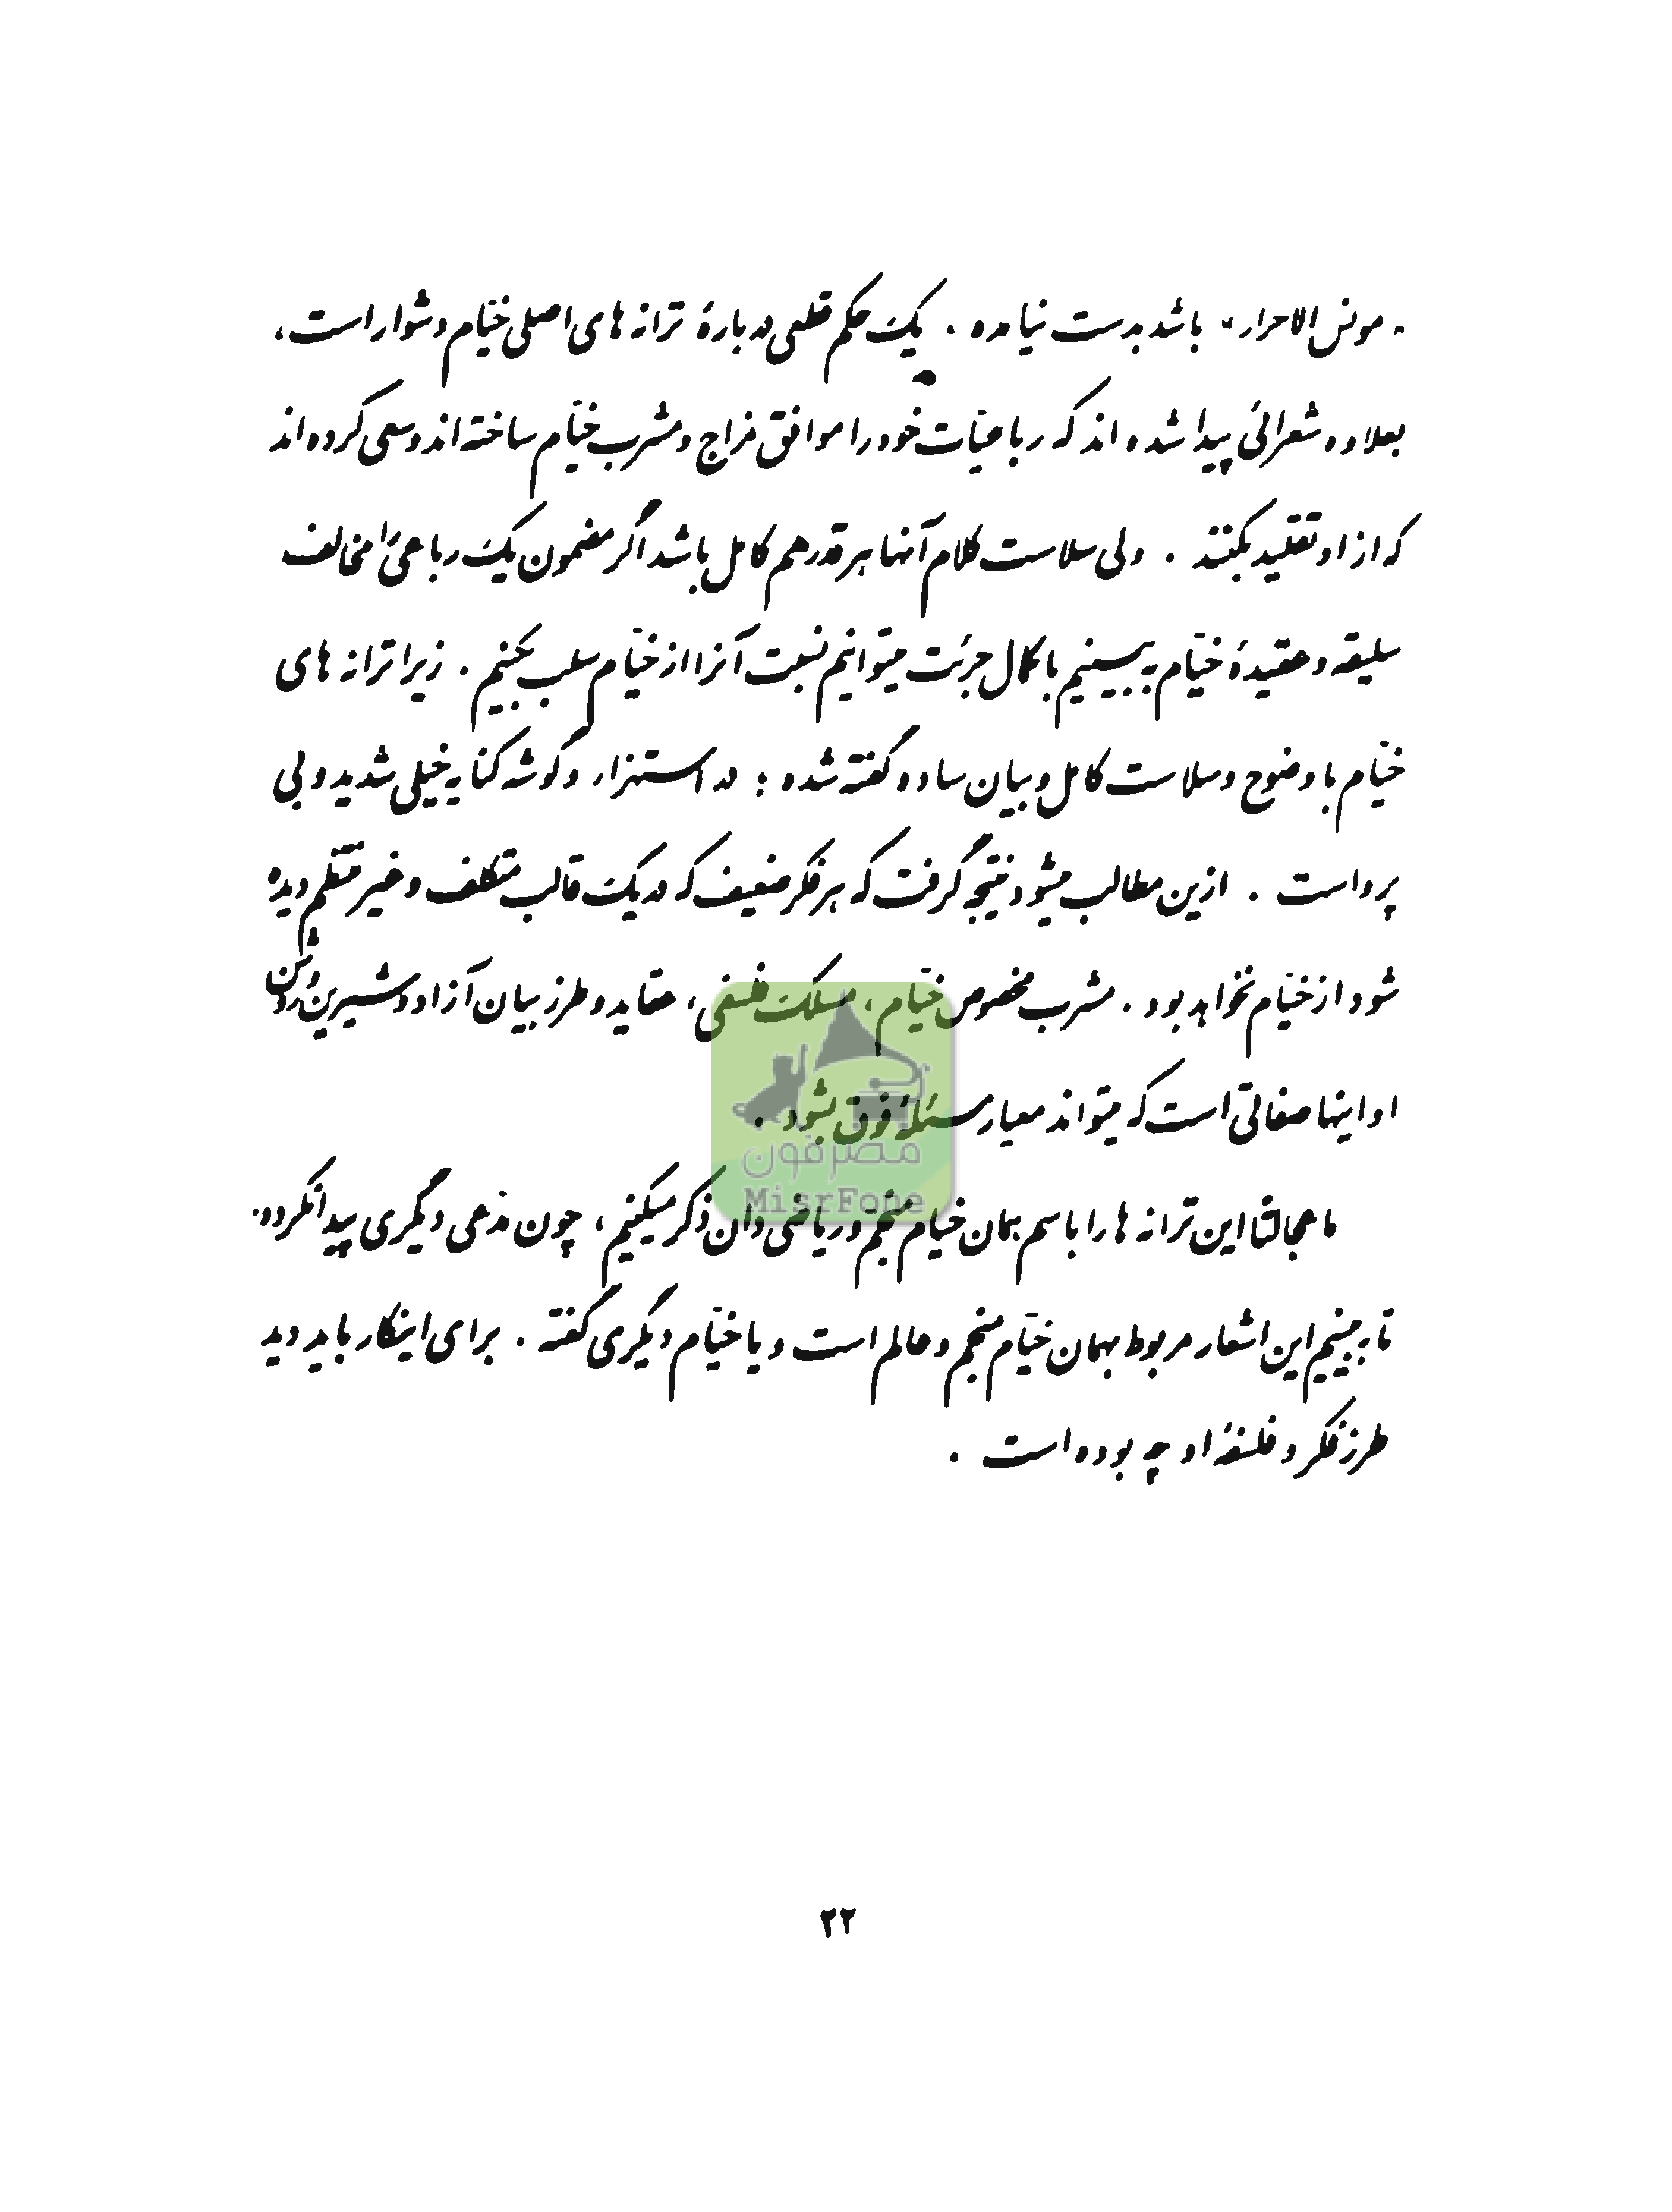 "مونس الاحرار" باشد بدست نیامده . یک حکم قطعی در بارهٔ ترانه های اصلی خیّام دشوار است،
بعلاوه شعرائی پیدا شده اند که رباعیّات خود را موافق مزاج و مشرب خیّام ساخته اند و سعی کرده اند
که از او تقلید بکنند . ولی سلاست کلام آنها هر قدر هم کامل باشد اگر مضمون یک رباعی را مخالف
سلیقه و عقیدهٔ خیّام به بینیم با کمال جرئت میتوانیم نسبت آنرا از خیّام سلب بکنیم . زیرا ترانه های
خیّام با وضوح و سلاست کامل و بیان ساده گفته شده ؛ در استهزاء و گوشه کنایه خیلی شدید و بی
پرواست . ازین مطالب میشود نتیجه گرفت که هر فکر ضعیف که در یک قالب متکلف و غیر منتظم دیده
شود از خیّام نخواهد بود . مشرب مخصوص خیّام ، مسلک فلسفی ، عقاید و طرز بیان آزاد و شیرین و روشن
او اینها صفاتی است که میتواند معیار مسئلهٔ فوق بشود .
مصرفون
MisrFone
ما عجالتاً این ترانه ها را باسم همان خیّام منجّم و ریاضی دان ذکر میکنیم ، چون مدّعی دیگری پیدا نکرده .
تا به بینیم این اشعار مربوط بهمان خیّام منجم و عالم است و یا خیّام دیگری گفته . برای اینکار باید دید
طرز فکر و فلسفهٔ او چه بوده است .
۲۲